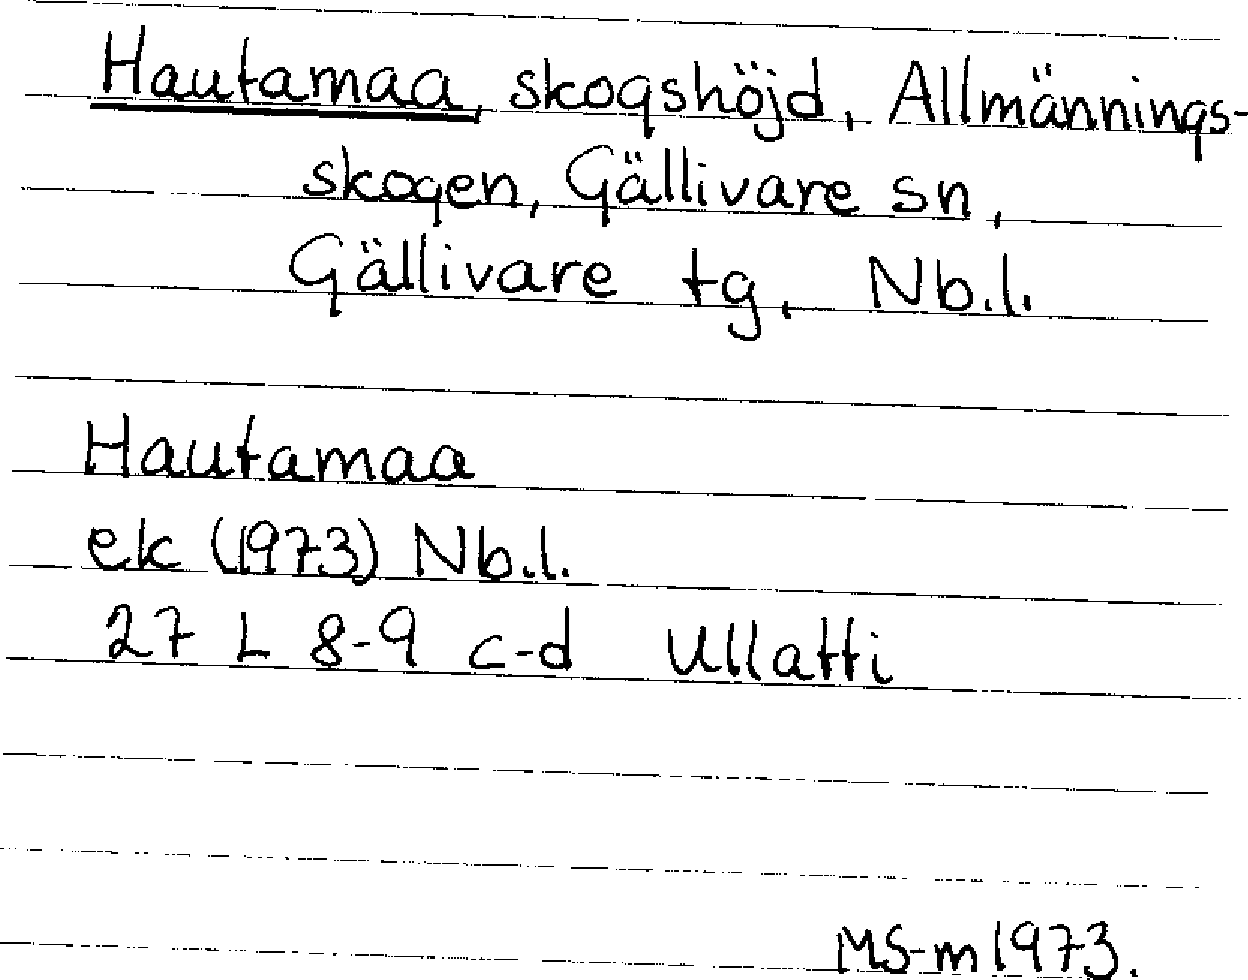 Hautamaa, skogshöjd, Allmännings-
skogen, Gällivare sn,
Gällivare tg, Nb.l.
Hautamaa
ek (1973) Nb.l.
27 L 8-9 c-d Ullatti
MS-m 1973.